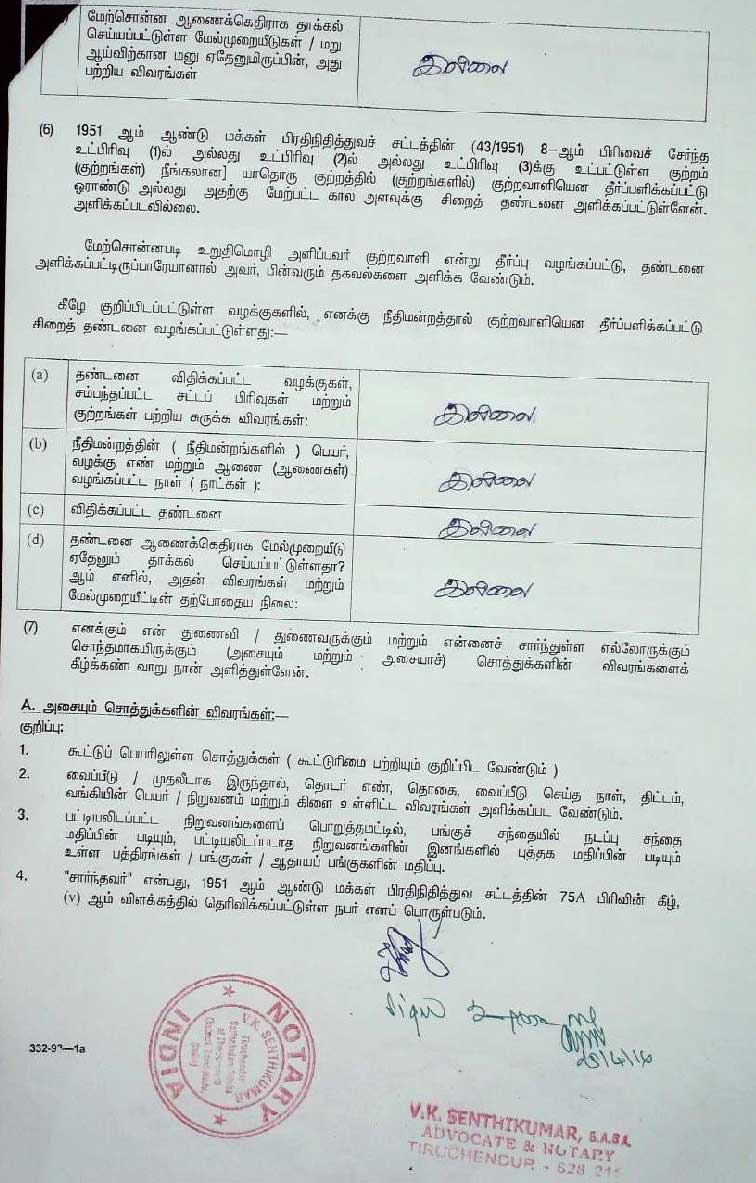 மேற்சொன்ன ஆணைக்கெதிராக தாக்கல்
செய்யப்பட்டுள்ள மேல்முறையீடுகள் / மறு
ஆய்விற்கான மனு ஏதேனுமிருப்பின், அது
பற்றிய விவரங்கள்
இல்லை
(6) 1951 ஆம் ஆண்டு மக்கள் பிரதிநிதித்துவச் சட்டத்தின் (43/1951) 8-ஆம் பிரிவைச் சேர்ந்த
உட்பிரிவு (1)ல் அல்லது உட்பிரிவு (2)ல் அல்லது உட்பிரிவு (3)க்கு உட்பட்டுள்ள குற்றம்
(குற்றங்கள்) நீங்கலான] யாதொரு குற்றத்தில் (குற்றங்களில்) குற்றவாளியென தீர்ப்பளிக்கப்பட்டு
ஓராண்டு அல்லது அதற்கு மேற்பட்ட கால அளவுக்கு சிறைத் தண்டனை அளிக்கப்பட்டுள்ளேன்.
அளிக்கப்படவில்லை.
மேற்சொன்னபடி உறுதிமொழி அளிப்பவர் குற்றவாளி என்று தீர்ப்பு வழங்கப்பட்டு, தண்டனை
அளிக்கப்பட்டிருப்பாரேயானால் அவர், பின்வரும் தகவல்களை அளிக்க வேண்டும்.
கீழே குறிப்பிடப்பட்டுள்ள வழக்குகளில், எனக்கு நீதிமன்றத்தால் குற்றவாளியென தீர்ப்பளிக்கப்பட்டு
சிறைத் தண்டனை வழங்கப்பட்டுள்ளது:—
(a) தண்டனை விதிக்கப்பட்ட வழக்குகள்,
சம்பந்தப்பட்ட சட்டப் பிரிவுகள் மற்றும்
குற்றங்கள் பற்றிய சுருக்க விவரங்கள்:
இல்லை
(b) நீதிமன்றத்தின் ( நீதிமன்றங்களில் ) பெயர்,
வழக்கு எண் மற்றும் ஆணை (ஆணைகள்)
வழங்கப்பட்ட நாள் ( நாட்கள் ):
இல்லை
(c) விதிக்கப்பட்ட தண்டனை
இல்லை
(d) தண்டனை ஆணைக்கெதிராக மேல்முறையீடு
ஏதேனும் தாக்கல் செய்யப்பட்டுள்ளதா?
ஆம் எனில், அதன் விவரங்கள் மற்றும்
மேல்முறையீட்டின் தற்போதைய நிலை:
இல்லை
(7) எனக்கும் என் துணைவி / துணைவருக்கும் மற்றும் என்னைச் சார்ந்துள்ள எல்லோருக்கும்
சொந்தமாகயிருக்கும் (அசையும் மற்றும் அசையாச்) சொத்துக்களின் விவரங்களைக்
கீழ்க்கண்ட வாறு நான் அளித்துள்ளேன்.
A. அசையும் சொத்துக்களின் விவரங்கள்:—
குறிப்பு:
1. கூட்டுப் பெயரிலுள்ள சொத்துக்கள் ( கூட்டுரிமை பற்றியும் குறிப்பிட வேண்டும் )
2. வைப்பீடு / முதலீடாக இருந்தால், தொடர் எண், தொகை, வைப்பீடு செய்த நாள், திட்டம்,
வங்கியின் பெயர் / நிறுவனம் மற்றும் கிளை உள்ளிட்ட விவரங்கள் அளிக்கப்பட வேண்டும்.
3. பட்டியலிடப்பட்ட நிறுவனங்களைப் பொறுத்தமட்டில், பங்குச் சந்தையில் நடப்பு சந்தை
மதிப்பின் படியும், பட்டியலிடப்படாத நிறுவனங்களின் இனங்களில் புத்தக மதிப்பின் படியும்
உள்ள பத்திரங்கள் / பங்குகள் / ஆதாயப் பங்குகளின் மதிப்பு.
4. "சார்ந்தவர்" என்பது, 1951 ஆம் ஆண்டு மக்கள் பிரதிநிதித்துவ சட்டத்தின் 75A பிரிவின் கீழ்,
(v) ஆம் விளக்கத்தில் தெரிவிக்கப்பட்டுள்ள நபர் எனப் பொருள்படும்.
332-93—1a
NOTARY
INDIA
V.K. SENTHIKUMAR
V.K. SENTHIKUMAR, B.A.B.L
ADVOCATE & NOTARY
TIRUCHENDUR - 628 215